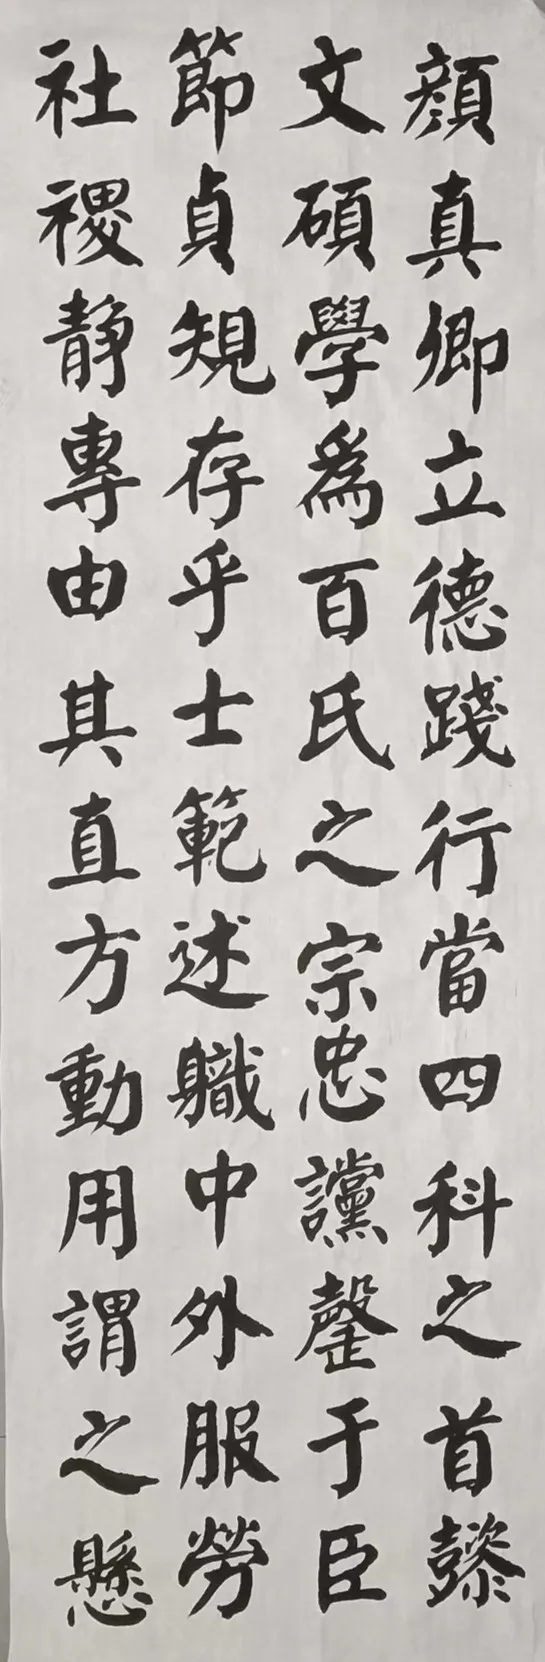 顔真卿立德踐行當四科之首懿
文碩學爲百氏之宗忠讜罄于臣
節貞規存乎士範述軄中外服勞
社稷静專由其直方動用謂之懸